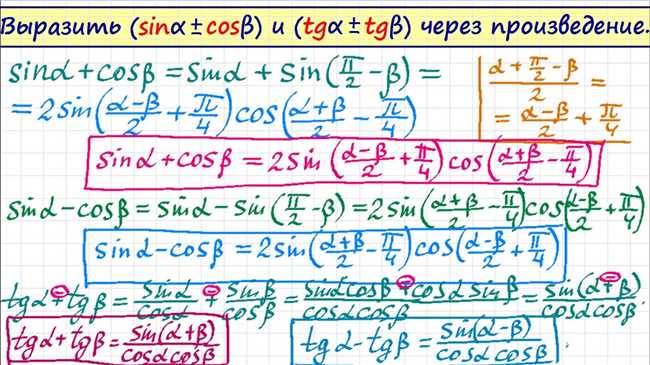 Выразить (sinα ± cosβ) и (tgα ± tgβ) через произведение.
sinα + cosβ = sinα + sin(π/2 − β) =
= 2sin((α−β)/2 + π/4) cos((α+β)/2 − π/4)
(α + π/2 − β)/2 =
= (α−β)/2 + π/4
sinα + cosβ = 2sin((α−β)/2 + π/4) cos((α+β)/2 − π/4)
sinα − cosβ = sinα − sin(π/2 − β) = 2sin((α+β)/2 − π/4) cos((α−β)/2 + π/4)
sinα − cosβ = 2sin((α+β)/2 − π/4) cos((α−β)/2 + π/4)
tgα ± tgβ = sinα/cosα ± sinβ/cosβ = (sinα cosβ ± cosα sinβ)/(cosα cosβ) = sin(α ± β)/(cosα cosβ).
tgα + tgβ = sin(α+β)/(cosα cosβ)
tgα − tgβ = sin(α−β)/(cosα cosβ).